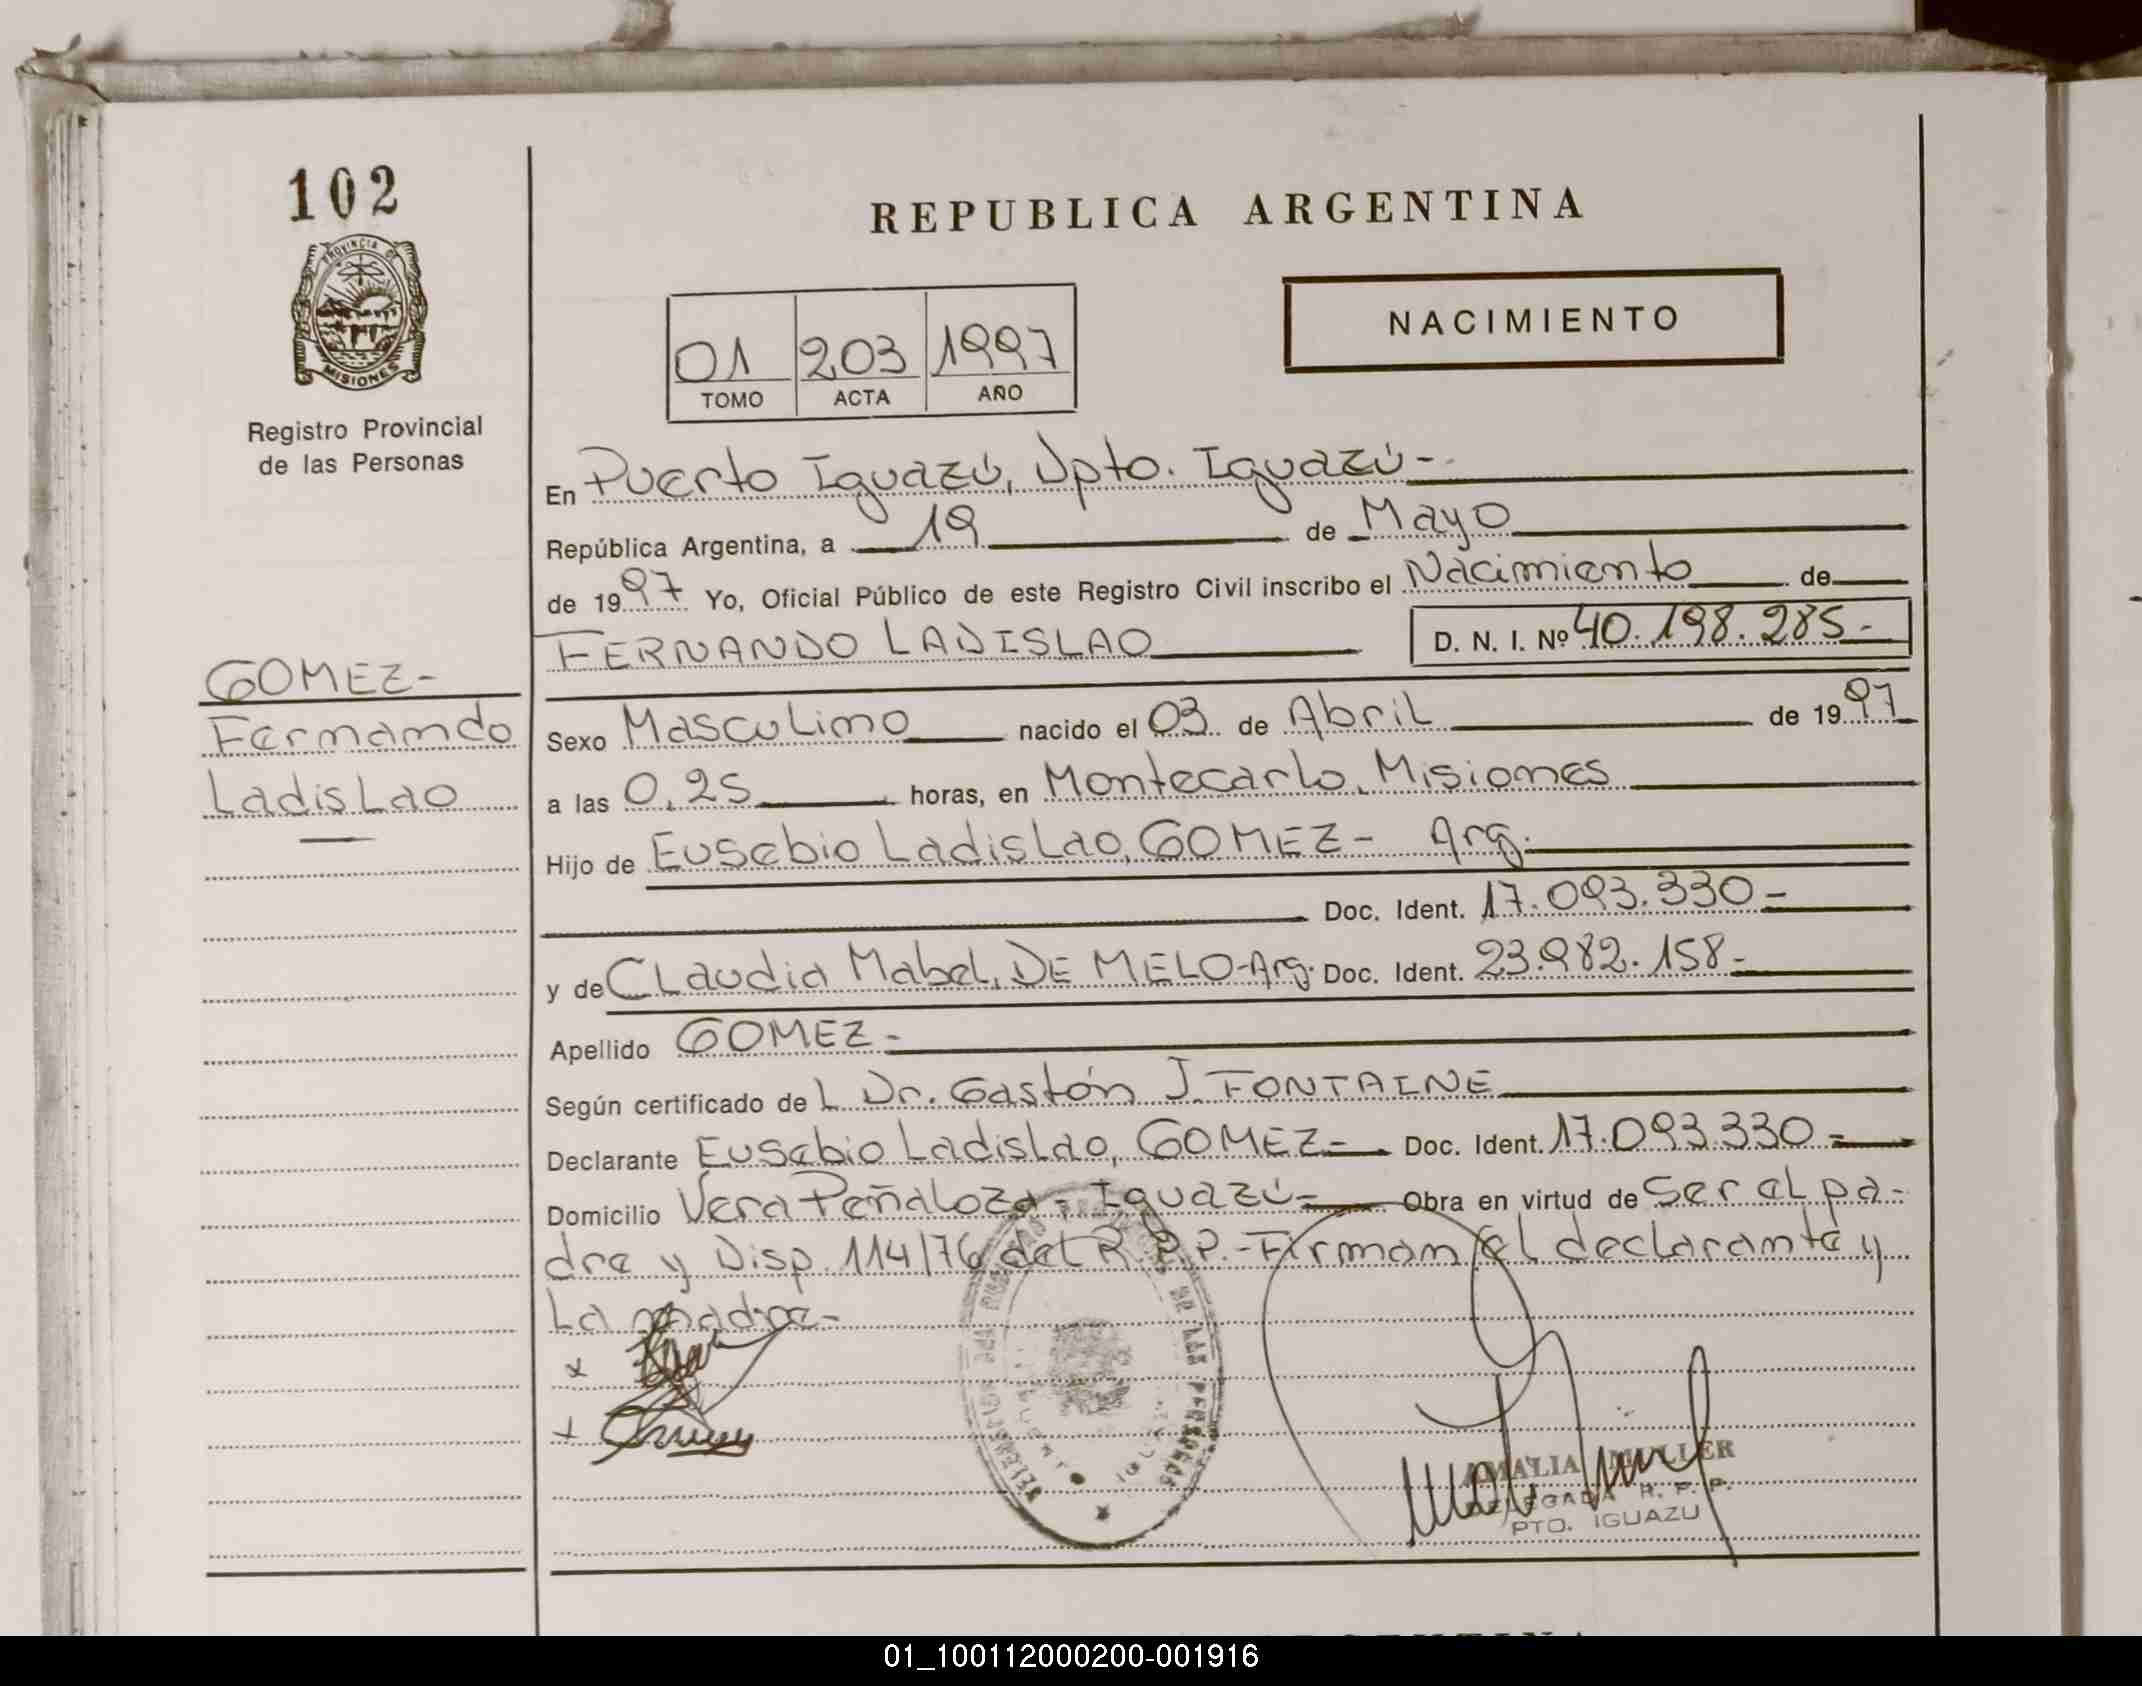 102
PROVINCIA DE
MISIONES
Registro Provincial
de las Personas
GOMEZ-
Fernando
Ladislao
REPUBLICA ARGENTINA
01 203 1997
TOMO ACTA AÑO
NACIMIENTO
En Puerto Iguazú, Dpto. Iguazú-
República Argentina, a 19 de Mayo
de 1997 Yo, Oficial Público de este Registro Civil inscribo el Nacimiento de
FERNANDO LADISLAO D. N. I. Nº 40.198.285-
Sexo Masculino nacido el 03 de Abril de 1997
a las 0,25 horas, en Montecarlo, Misiones
Hijo de Eusebio Ladislao, GOMEZ- Arg.
Doc. Ident. 17.093.330-
y de Claudia Mabel, DE MELO-Arg. Doc. Ident. 23.982.158-
Apellido GOMEZ-
Según certificado del Dr. Gastón J. FONTAINE
Declarante Eusebio Ladislao, GOMEZ- Doc. Ident. 17.093.330-
Domicilio Vera Peñaloza- Iguazú- Obra en virtud de ser el pa-
dre y Disp. 114/76 del R. P. P.- Firman el declarante y
la madre-
x
x
AMALIA MULLER
DELEGADA R. P. P.
PTO. IGUAZU
01_100112000200-001916